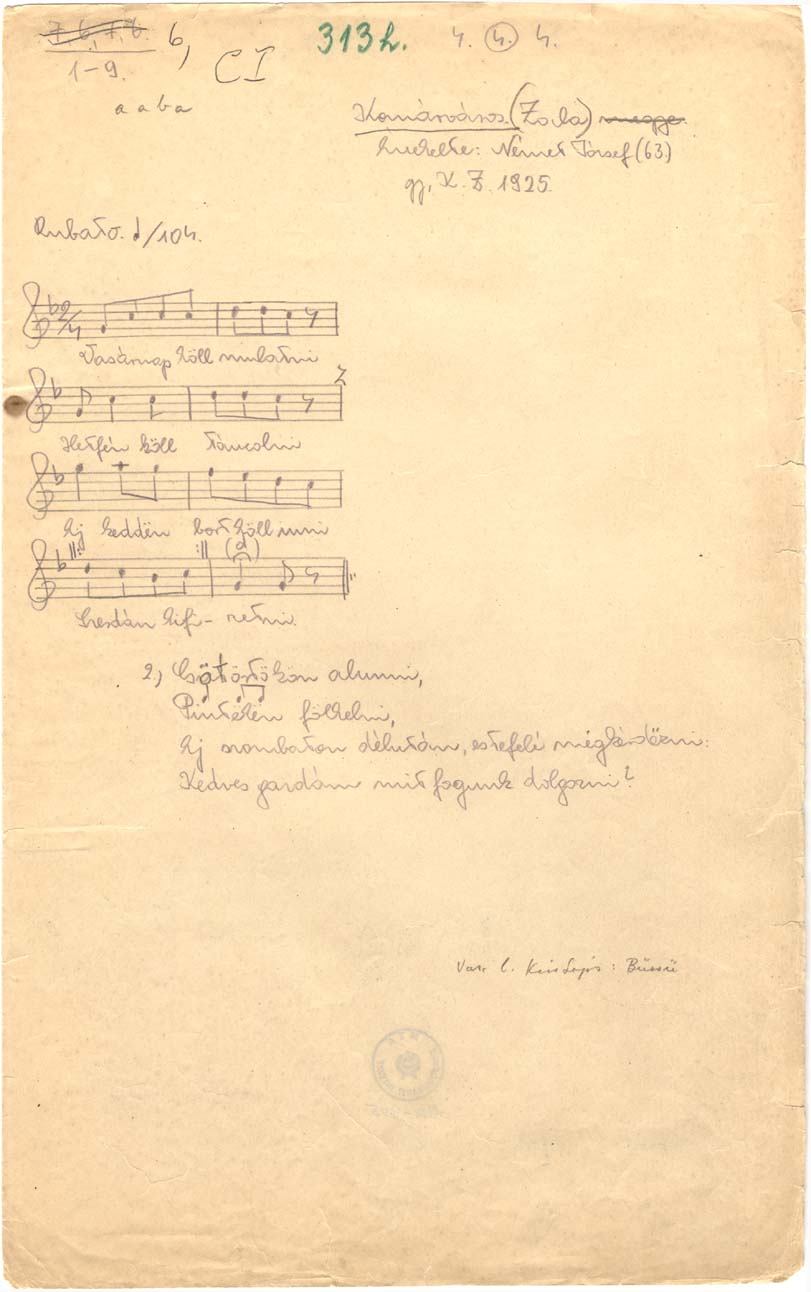 7, 6, 7, 6. 6,
1-9.
CI
313h.
4. 4. 4.
a a b a
Komárváros. (Zala) megye.
Énekelte: Német József (63)
gy. K. Z. 1925.
Rubato. /104.
2/4
Vasárnap köll mulatni
Hetfén köll táncolni
Ej keddën bort köll inni
Szerdán kifi- zetni.
2.) Csötörtökön alunni,
Pintëkën fölkelni,
Ej szombaton délután, estefelé mëgkérdözni:
Kedves gazdám mit fogunk dolgozni?
Var. l. Kiss Lajos: Büssü